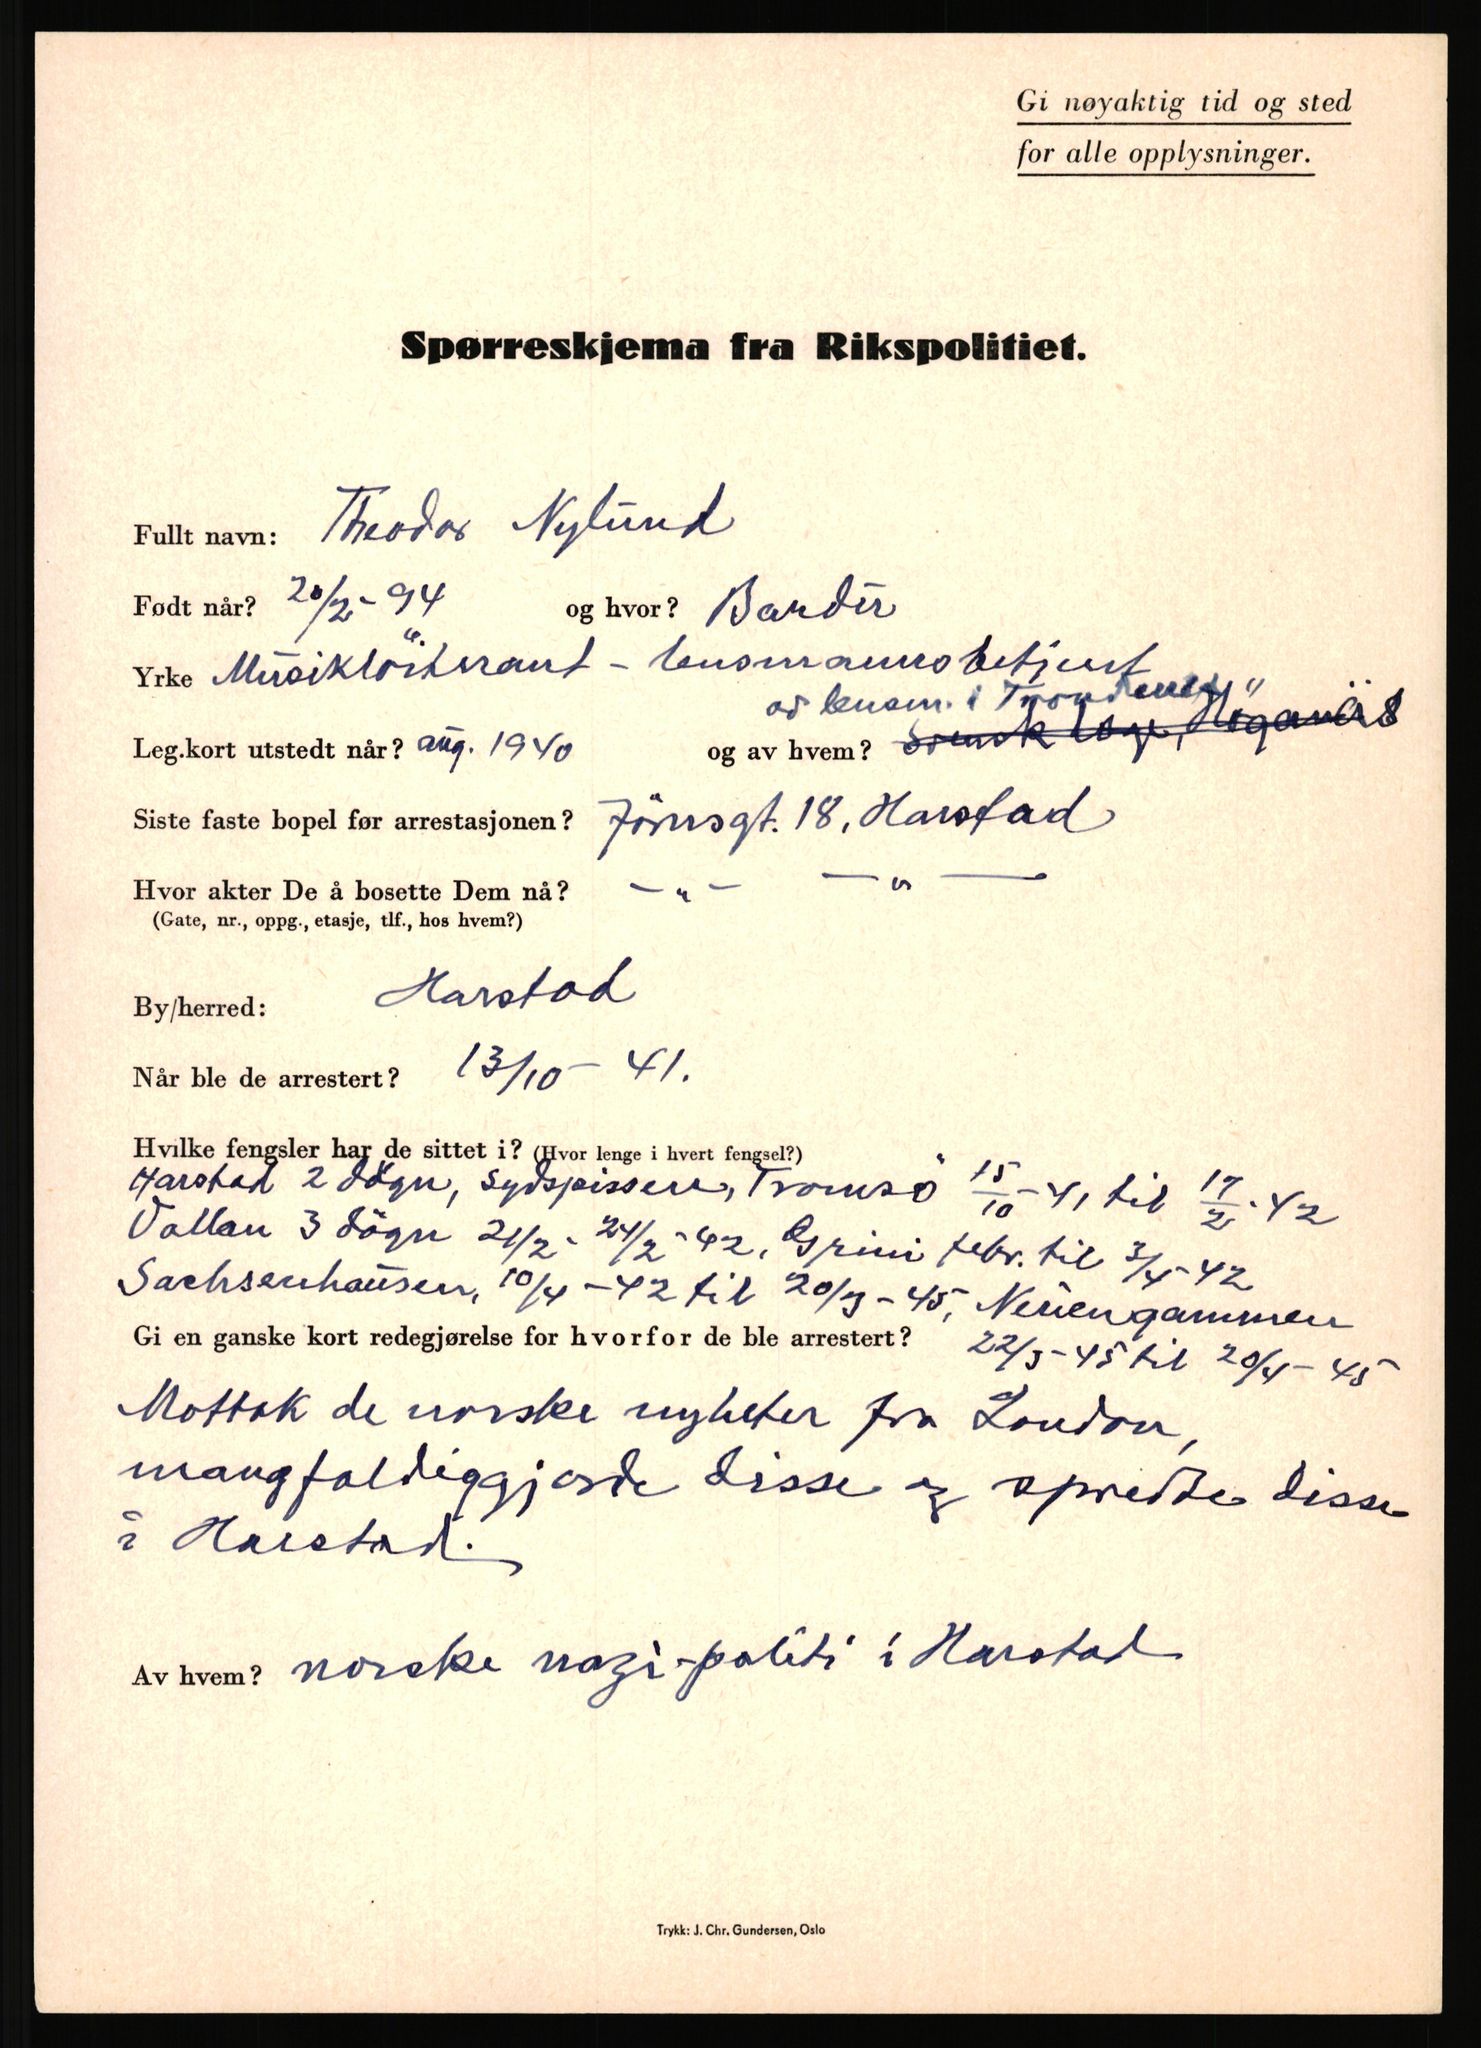 Gi nøyaktig tid og sted
for alle opplysninger.
Spørreskjema fra Rikspolitiet.
Fullt navn: Theodor Nylund
Født når? 20/2 - 94 og hvor? Bardu
Yrke Musikløitnant - lensmannsbetjent
av lensm. i Trondenes
Leg.kort utstedt når? aug. 1940 og av hvem? Svensk Höganäs
Siste faste bopel før arrestasjonen? 18, Harstad
Hvor akter De å bosette Dem nå? - " - - " -
(Gate, nr., oppg., etasje, tlf., hos hvem?)
By/herred: Harstad
Når ble de arrestert? 13/10 - 41.
Hvilke fengsler har de sittet i? (Hvor lenge i hvert fengsel?)
Harstad 2 døgn, Sydspissen, Tromsö 15/10 - 41 til 17/2 - 42
Vollan 3 dögn 21/2 - 24/2 - 42, Grini febr. til 3/4 - 42
Sachsenhausen, 10/4 - 42 til 20/3 - 45, Neuengammen
Gi en ganske kort redegjørelse for hvorfor de ble arrestert? 22/3 - 45 til 20/4 - 45
Mottok de norske nyheter fra London,
mangfoldiggjorde disse og spredte disse
i Harstad.
Av hvem? norske nazi-politi i Harstad
Trykk: J. Chr. Gundersen, Oslo